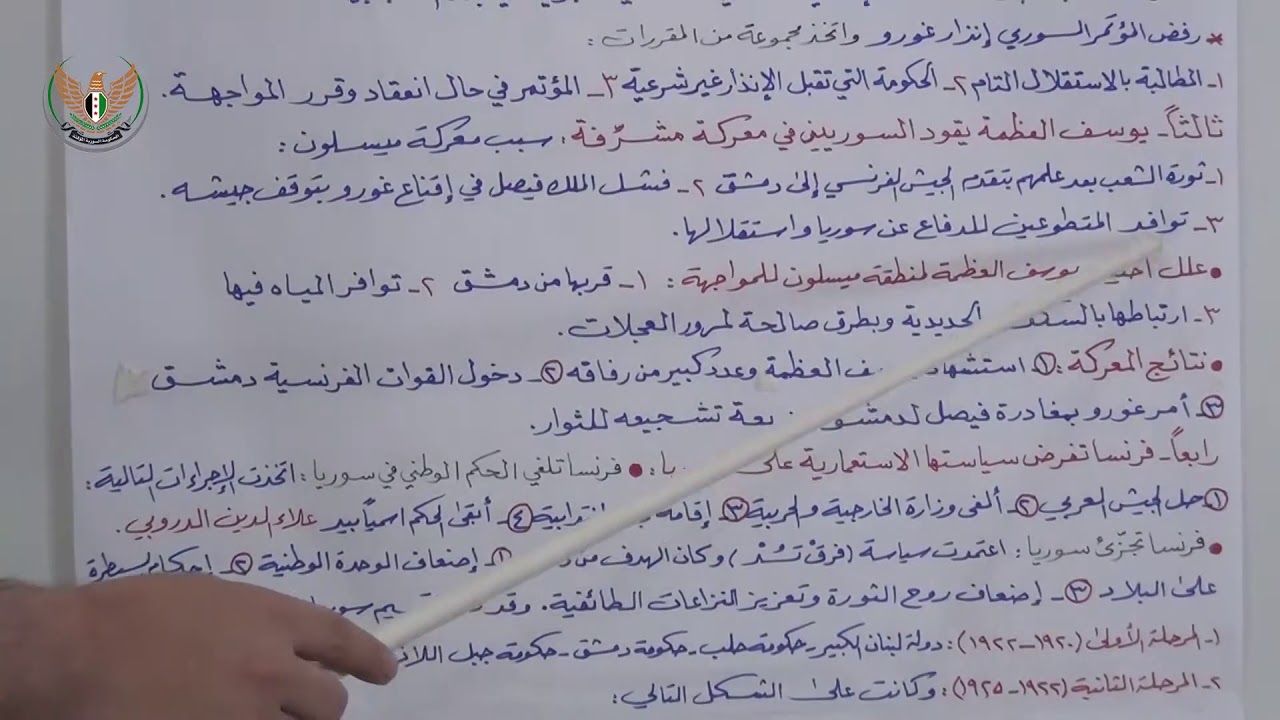 * رفض المؤتمر السوري إنذار غورو واتخذ مجموعة من المقررات :
١- المطالبة بالاستقلال التام ٢- الحكومة التي تقبل الإنذار غير شرعية ٣- المؤتمر في حال انعقاد وقرر المواجهة.
ثالثاً- يوسف العظمة يقود السوريين في معركة مشرّفة : سبب معركة ميسلون :
١- ثورة الشعب بعد علمهم بتقدم الجيش الفرنسي إلى دمشق ٢- فشل الملك فيصل في إقناع غورو بتوقف جيشه .
٣- توافد المتطوعين للدفاع عن سوريا واستقلالها.
• علل يوسف العظمة لمنطقة ميسلون للمواجهة : ١- قربها من دمشق ٢- توافر المياه فيها
٣- ارتباطها الحديدية وبطرق صالحة لمرور العجلات .
• نتائج المعركة : ①- العظمة وعدد كبير من رفاقه ②- دخول القوات الفرنسية دمشق
③- أمر غورو بمغادرة فيصل تشجيعه للثوار.
رابعاً- فرنسا تفرض سياستها الاستعمارية على : • فرنسا تلغي الحكم الوطني في سوريا : اتخذت الإجراءات التالية :
① حل الجيش العربي ②- ألغى وزارة الخارجية والحربية ③- إقامة ④- أبقى الحكم اسمياً بيد علاء الدين الدروبي .
• فرنسا تجزّئ سوريا : اعتمدت سياسة (فرقْ تَسُدْ) وكان الهدف من ①- إضعاف الوحدة الوطنية ②- إحكام السيطرة
على البلاد ③- إضعاف روح الثورة وتعزيز النزاعات الطائفية. وقد
١- المرحلة الأولى (١٩٢٠-١٩٢٢) : دولة لبنان الكبير - حكومة حلب - حكومة دمشق - حكومة جبل
٢- المرحلة الثانية (١٩٢٢-١٩٢٥) : وكانت على الشكل التالي :